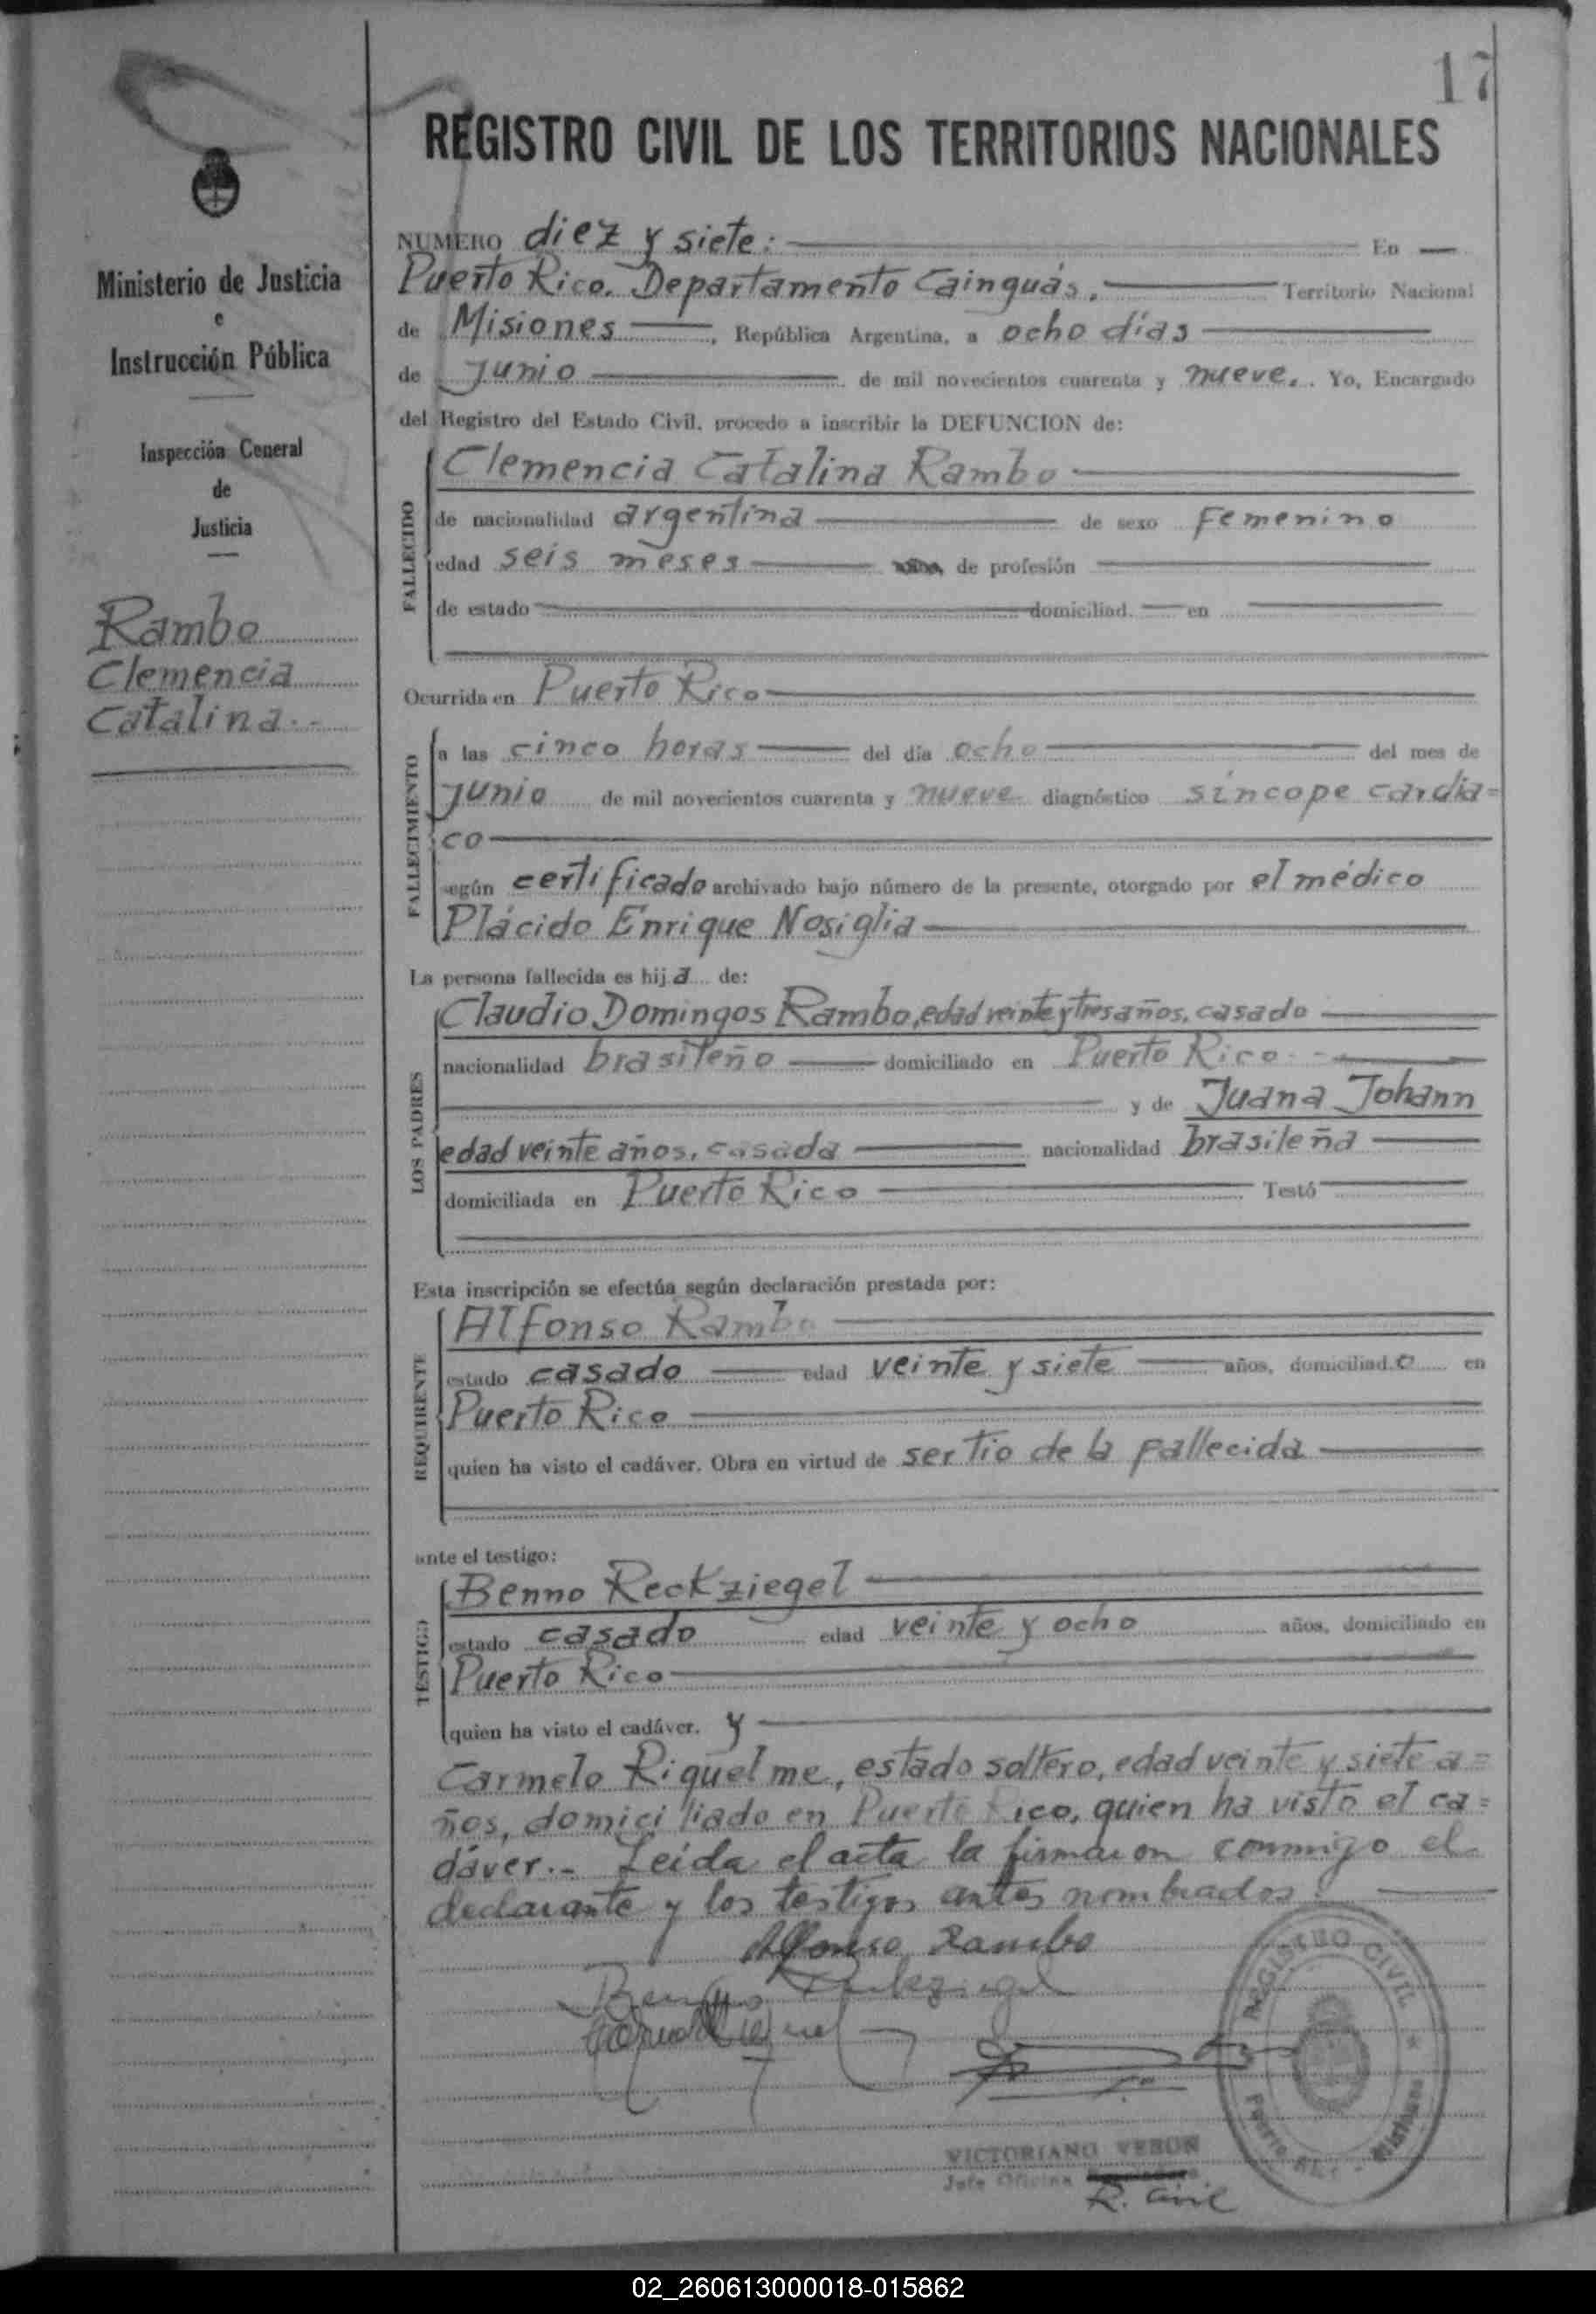 17
REGISTRO CIVIL DE LOS TERRITORIOS NACIONALES
Ministerio de Justicia
e
Instrucción Pública
Inspección General
de
Justicia
Rambo
Clemencia
Catalina.-
NUMERO diez y siete: En
Puerto Rico. Departamento Cainguás, Territorio Nacional
de Misiones, República Argentina, a ocho días
de junio de mil novecientos cuarenta y nueve. Yo, Encargado
del Registro del Estado Civil, procedo a inscribir la DEFUNCION de:
FALLECIDO
Clemencia Catalina Rambo
de nacionalidad argentina de sexo Femenino
edad seis meses de profesión
de estado domiciliad. en
Ocurrida en Puerto Rico
FALLECIMIENTO
a las cinco horas del día ocho del mes de
junio de mil novecientos cuarenta y nueve diagnóstico síncope cardia=
co
según certificado archivado bajo número de la presente, otorgado por el médico
Plácido Enrique Nosiglia
La persona fallecida es hija de:
LOS PADRES
Claudio Domingos Rambo, edad veinte y tres años, casado
nacionalidad brasileño domiciliado en Puerto Rico.-
y de Juana Johann
edad veinte años, casada nacionalidad brasileña
domiciliada en Puerto Rico Testó
Esta inscripción se efectúa según declaración prestada por:
REQUIRENTE
Alfonso Rambo
estado casado edad veinte y siete años, domiciliado en
Puerto Rico
quien ha visto el cadáver. Obra en virtud de ser tio de la fallecida
ante el testigo:
TESTIGO
Benno Reckziegel
estado casado edad veinte y ocho años, domiciliado en
Puerto Rico
quien ha visto el cadáver. y
Carmelo Riquelme, estado soltero, edad veinte y siete a=
ños, domiciliado en Puerto Rico, quien ha visto el ca=
dáver.- Leída el acta la firmaron conmigo el
declarante y los testigos antes nombrados.
Alfonso Rambo
Benno Reckziegel
REGISTRO CIVIL
Puerto Rico - Misiones
VICTORIANO VERON
Jefe Oficina
R. Civil
02_260613000018-015862